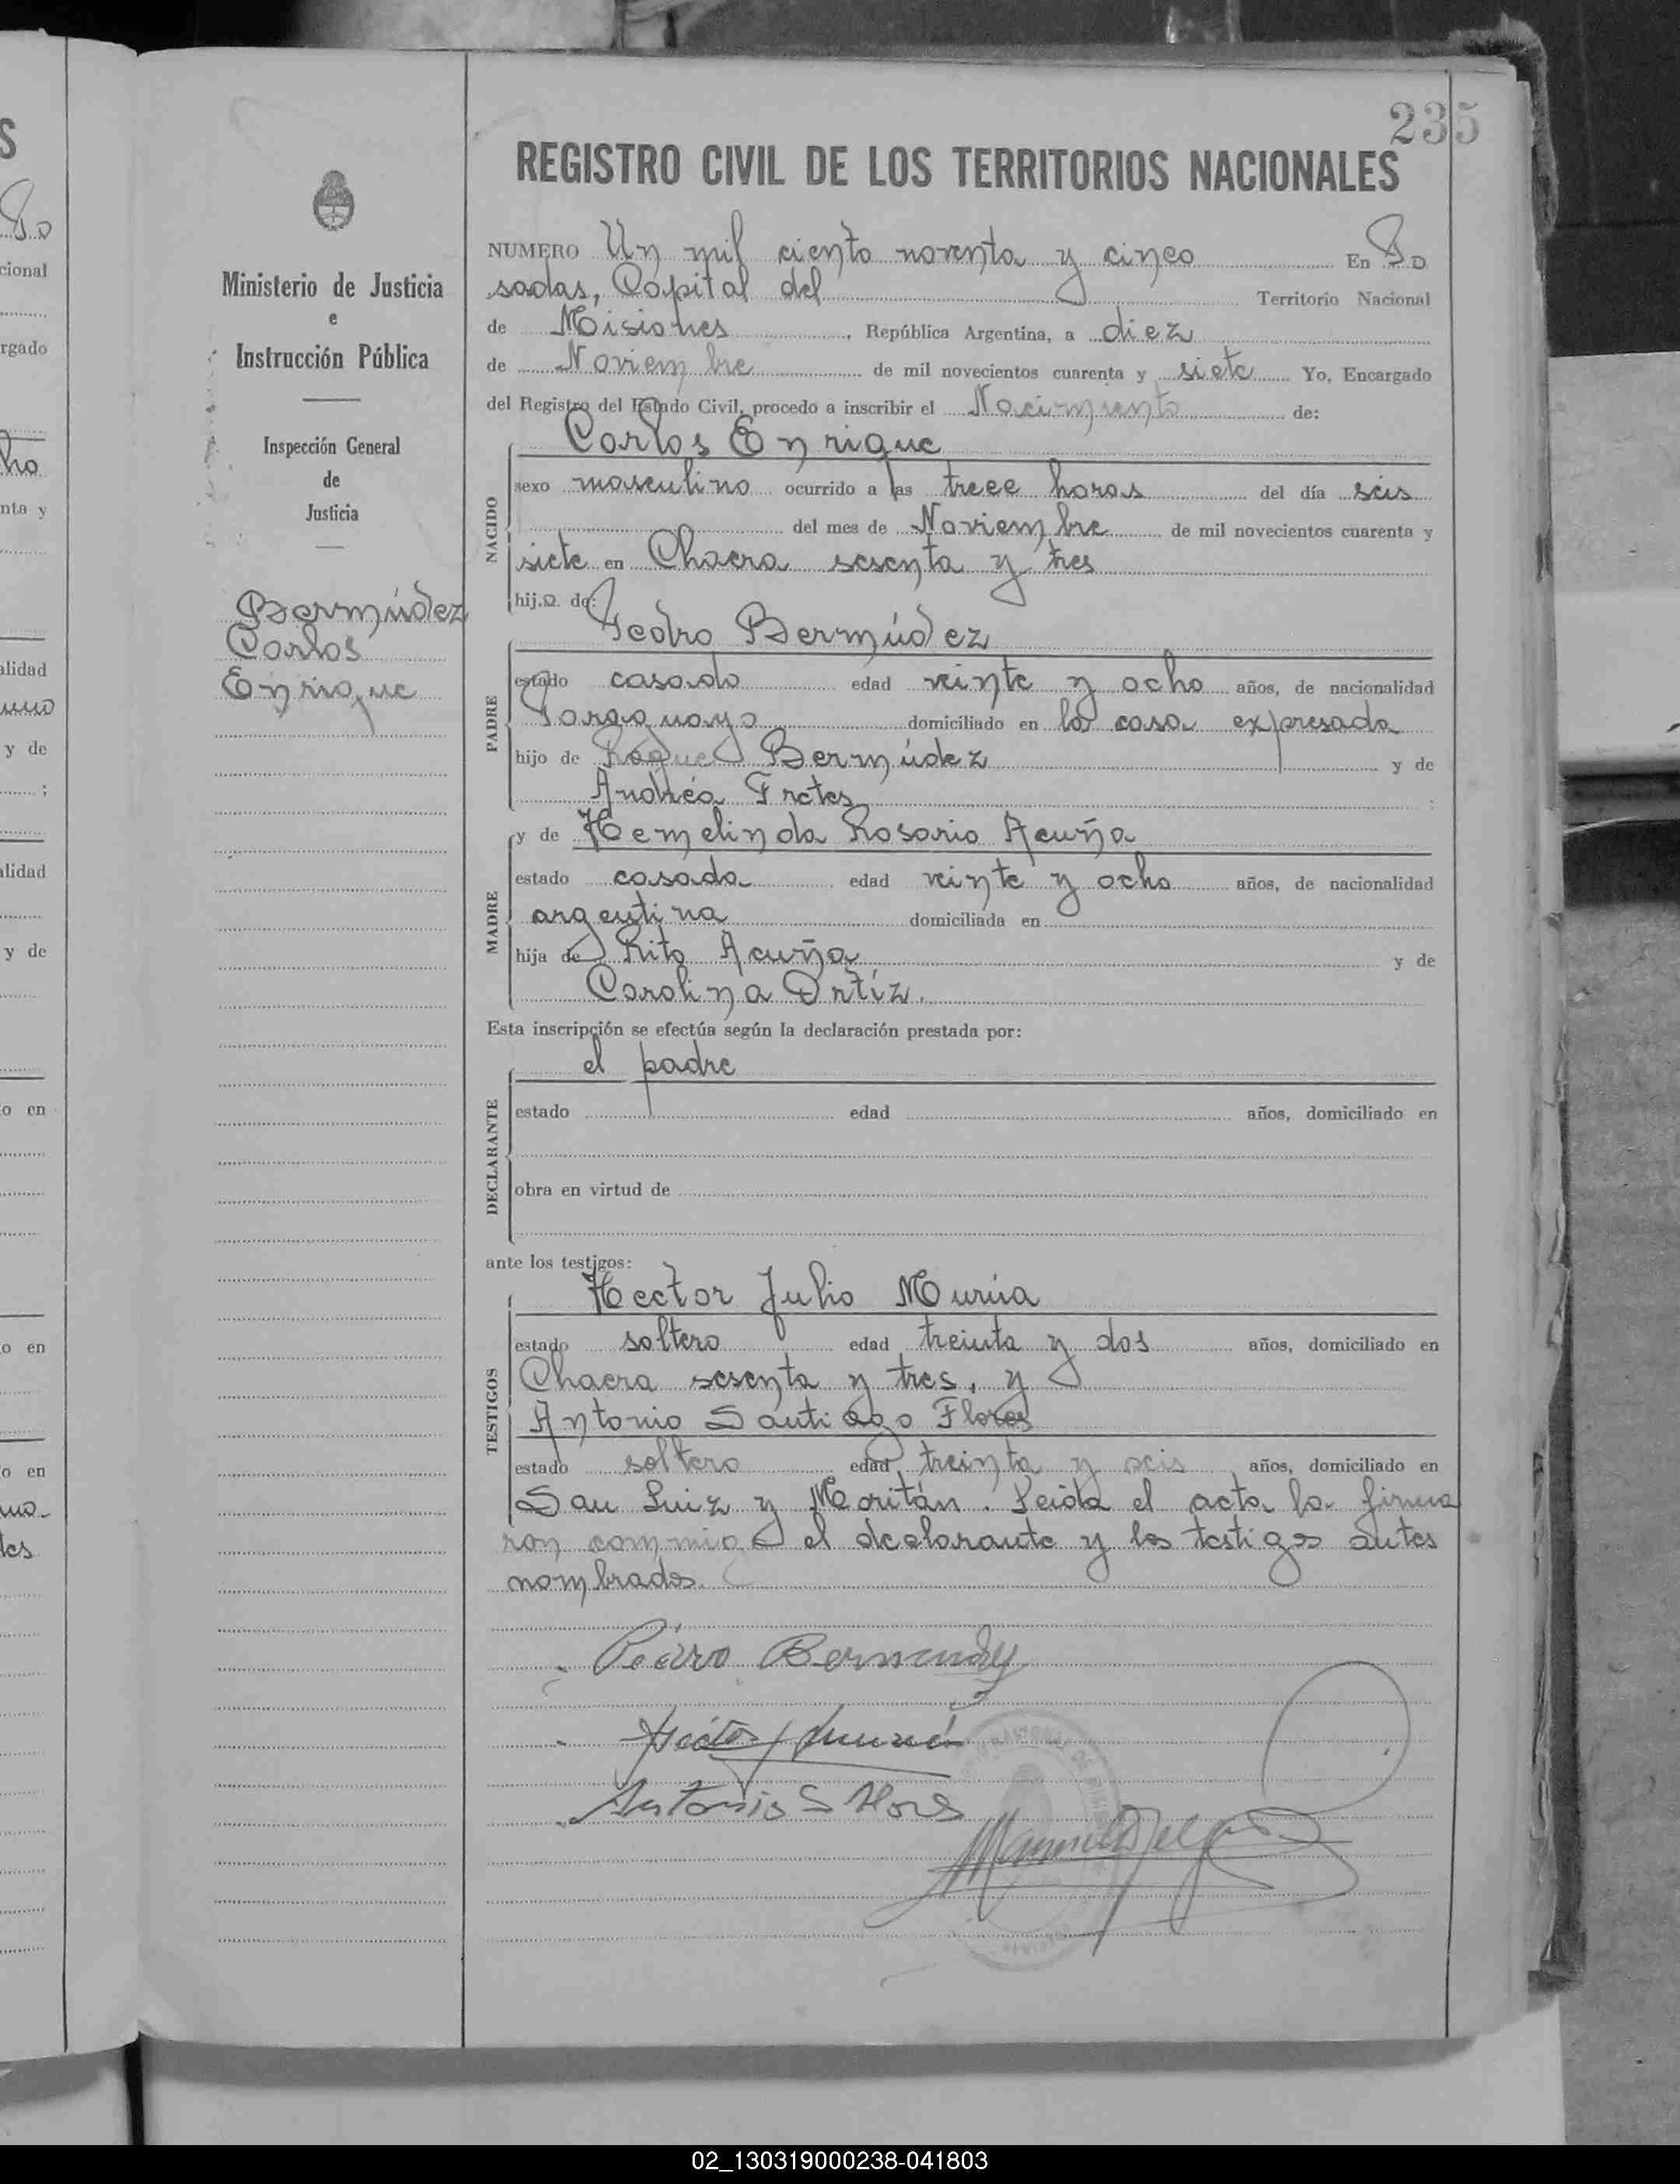 235
REGISTRO CIVIL DE LOS TERRITORIOS NACIONALES
Ministerio de Justicia
e
Instrucción Pública
Inspección General
de
Justicia
Bermúdez
Carlos
Enrique
NUMERO Un mil ciento noventa y cinco En Po
sadas, Capital del Territorio Nacional
de Misiones, República Argentina, a diez
de Noviembre de mil novecientos cuarenta y siete Yo, Encargado
del Registro del Estado Civil, procedo a inscribir el Nacimiento de:
Carlos Enrique
NACIDO
sexo masculino ocurrido a las trece horas del día seis
del mes de Noviembre de mil novecientos cuarenta y
siete en Chacra sesenta y tres
hijo de:
Pedro Bermúdez
PADRE
estado casado edad veinte y ocho años, de nacionalidad
Paraguayo domiciliado en la casa expresada
hijo de Roque Bermúdez y de
Andréa Fretes
y de Hemelinda Rosario Acuña
MADRE
estado casada edad veinte y ocho años, de nacionalidad
argentina domiciliada en
hija de Rito Acuña y de
Carolina Ortíz.
Esta inscripción se efectúa según la declaración prestada por:
el padre
DECLARANTE
estado edad años, domiciliado en
obra en virtud de
ante los testigos:
Hector Julio Murúa
TESTIGOS
estado soltero edad treinta y dos años, domiciliado en
Chacra sesenta y tres, y
Antonio Santiago Flores
estado soltero edad treinta y seis años, domiciliado en
San Luiz y Moritán. Leída el acta la firma
ron conmigo el declarante y los testigos antes
nombrados.
Pedro Bermudez
Antonio S Flores
02_130319000238-041803